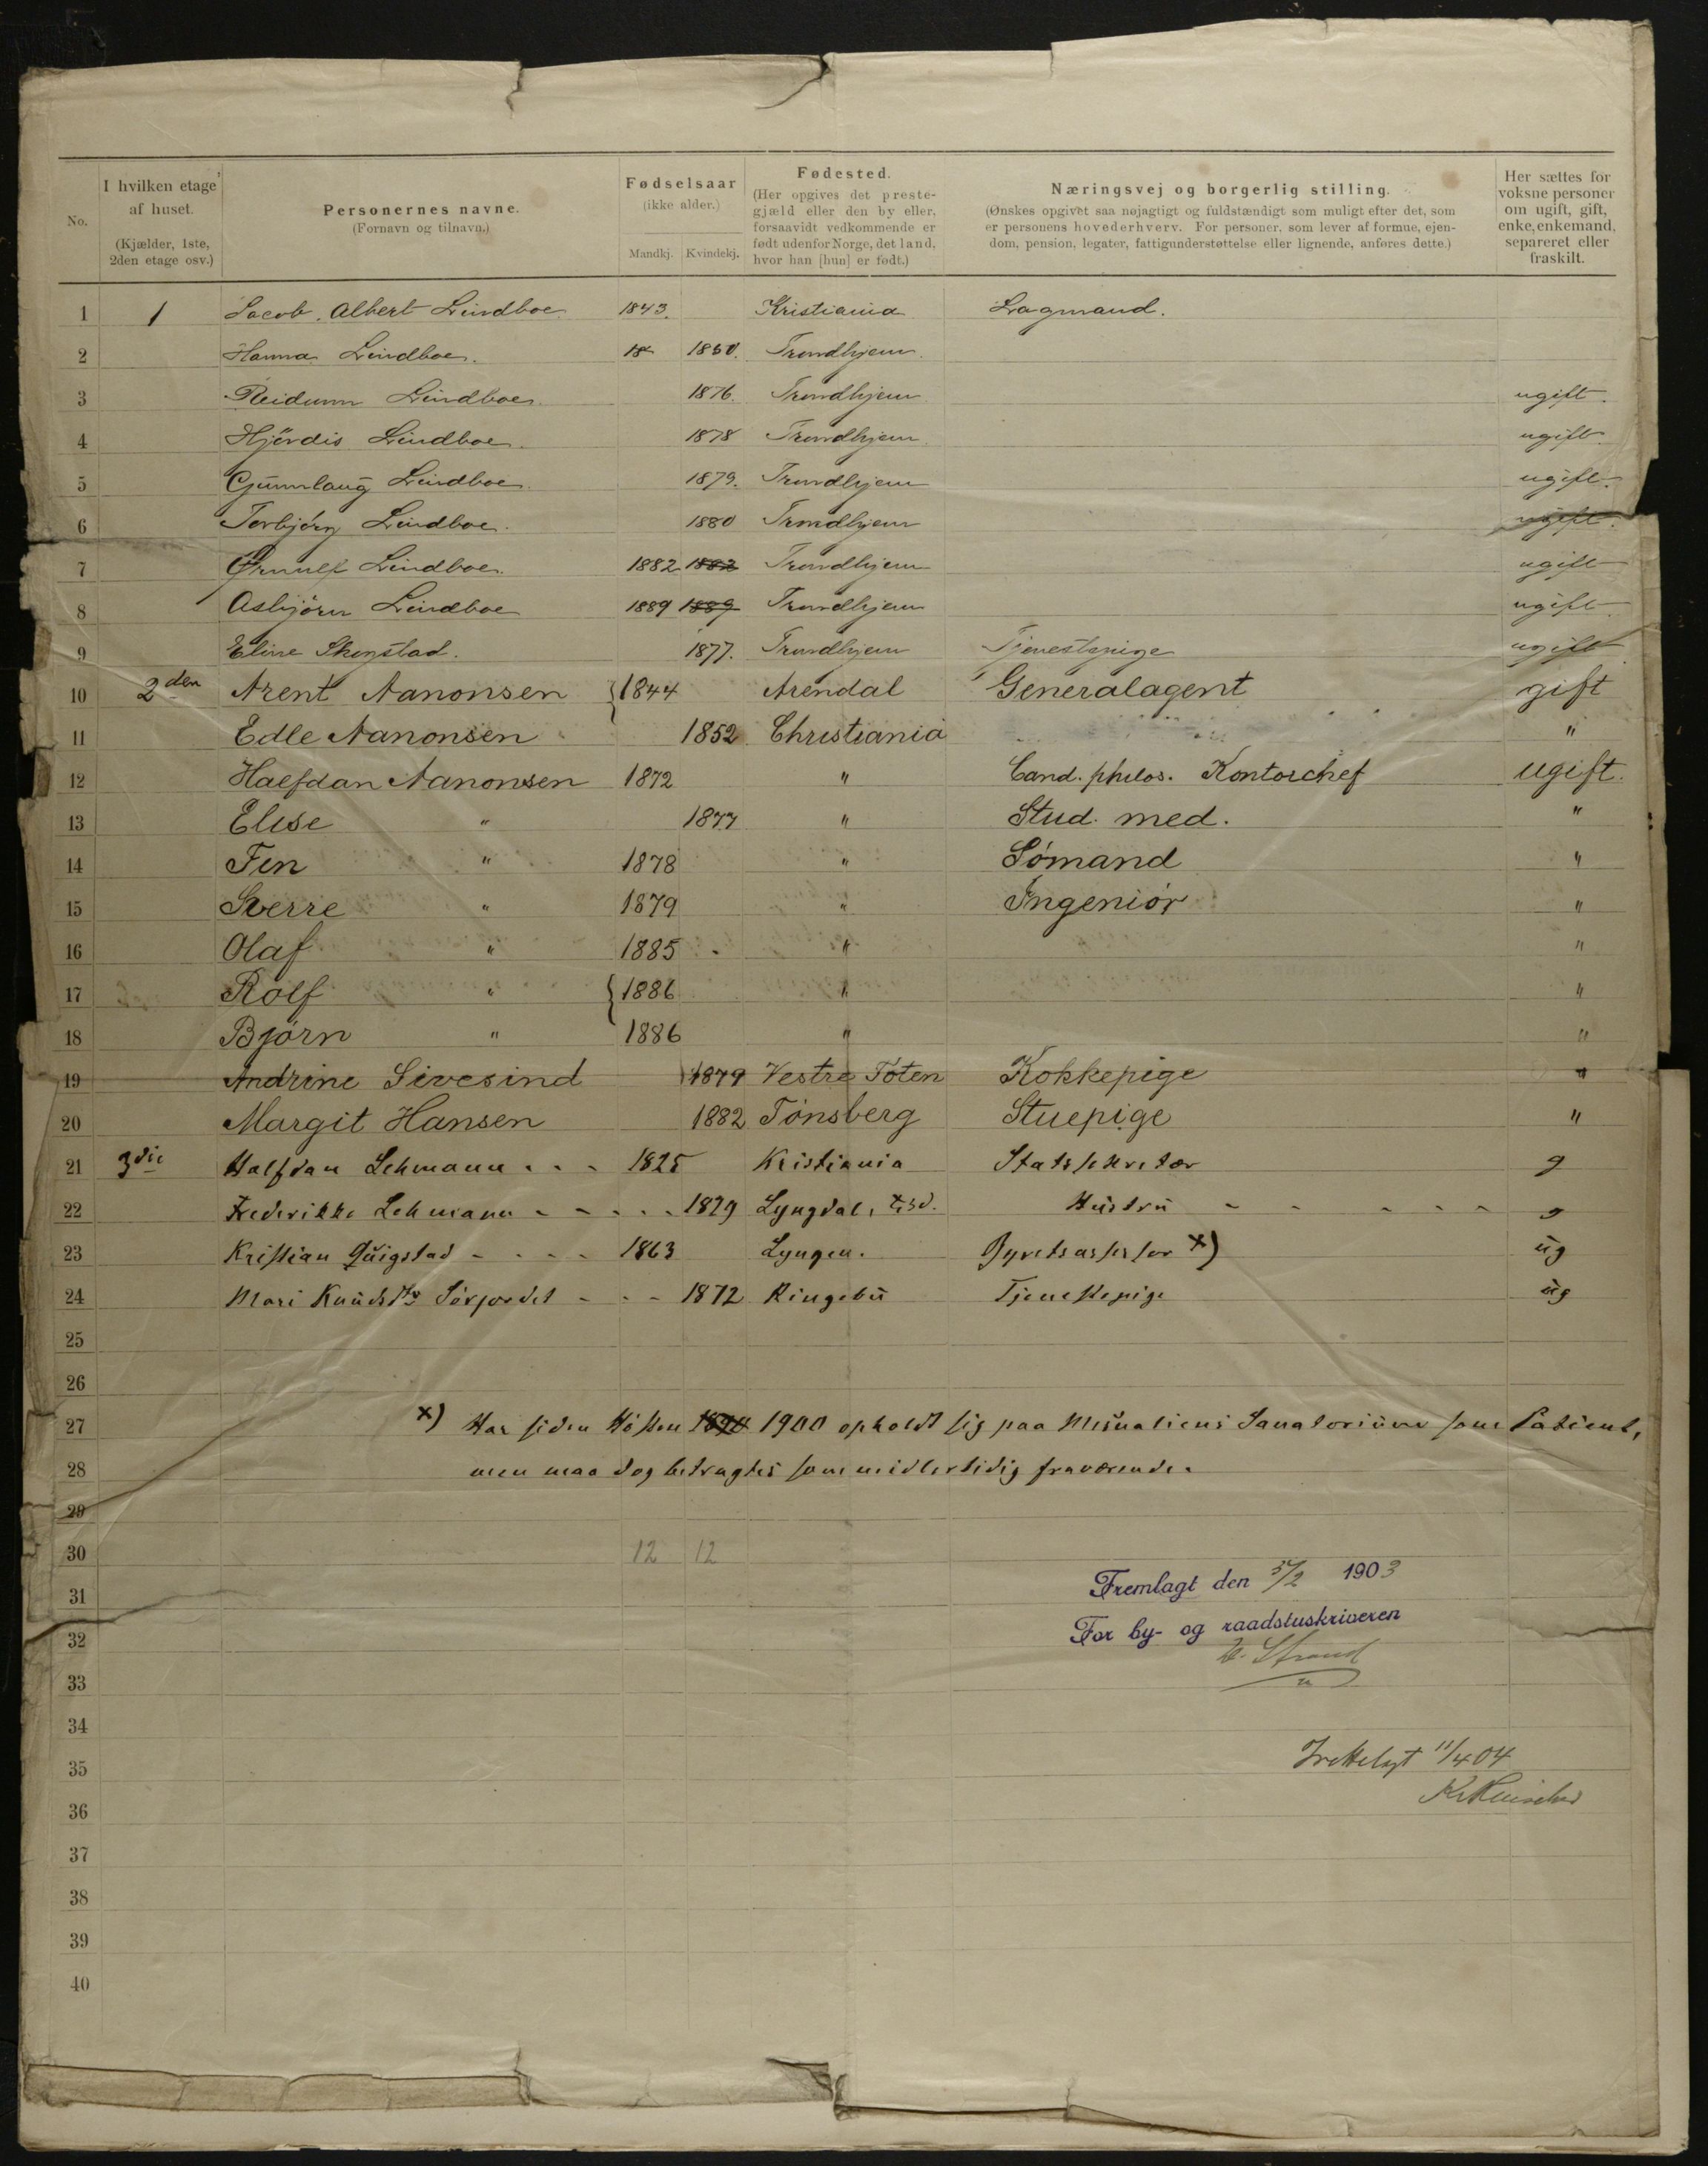 No. | I hvilken etage af huset. (Kjælder, 1ste, 2den etage osv.) | Personernes navne. (Fornavn og tilnavn.) | Fødselsaar (ikke alder.) Mandkj. Kvindekj. | Fødested. (Her opgives det prestegjæld eller den by eller, forsaavidt vedkommende er født udenfor Norge, det land, hvor han [hun] er født.) | Næringsvej og borgerlig stilling. (Ønskes opgivet saa nøjagtigt og fuldstændigt som muligt efter det, som er personens hovederhverv. For personer, som lever af formue, ejendom, pension, legater, fattigunderstøttelse eller lignende, anføres dette.) | Her sættes for voksne personer om ugift, gift, enke, enkemand, separeret eller fraskilt.
1 1 Jacob. Albert Lindboe 1843. Kristiania Lagmand.
2 Hanna Lindboe. 18 1850. Trondhjem.
3 Reidunn Lindboe. 1876. Trondhjem ugift.
4 Hjördis Lindboe. 1878 Trondhjem. ugift.
5 Gunnlaug Lindboe. 1879. Trondhjem ugift.
6 Torbjörg Lindboe. 1880 Trondhjem ugift.
7 Ørnulf Lindboe. 1882 1882 Trondhjem ugift
8 Asbjörn Lindboe 1889 1889 Trondhjem ugift.
9 Eline Skogstad. 1877. Trondhjem Tjenestepige ugift.
10 2den Arent Aanonsen 1844 Arendal Generalagent gift
11 Edle Aanonsen 1852 Christiania "
12 Halfdan Aanonsen 1872 " Cand. philos. Kontorchef ugift.
13 Elise " 1877 " Stud. med. "
14 Finn " 1878 " Sömand "
15 Sverre " 1879 " Ingeniör "
16 Olaf " 1885 " "
17 Rolf " 1886 " "
18 Bjórn " 1886 " "
19 Andrine Sivesind 1879 Vestre Toten Kokkepige "
20 Margit Hansen 1882 Tónsberg Stuepige "
21 3die Halfdan Lehmann 1825 Kristiania Statssekretær g
22 Frederikke Lehmann 1829 Lyngdal, Hustru g
23 Kristian Quigstad 1863 Lyngen. Byretsassessor x) ug
24 Mari Knudsdtr 1872 Ringebu Tjenestepige ug
25
26
27 x) Har siden Hösten 1900 opholdt sig paa Mesnaliens Sanatorium som Patient,
28 men maa dog betragtes som midlertidig fraværende.
29
30 12 12
Fremlagt den 5/2 1903
31
For by- og raadstuskriveren
32
Strand
33
34
Irettelagt 11/4 04
35
36
37
38
39
40